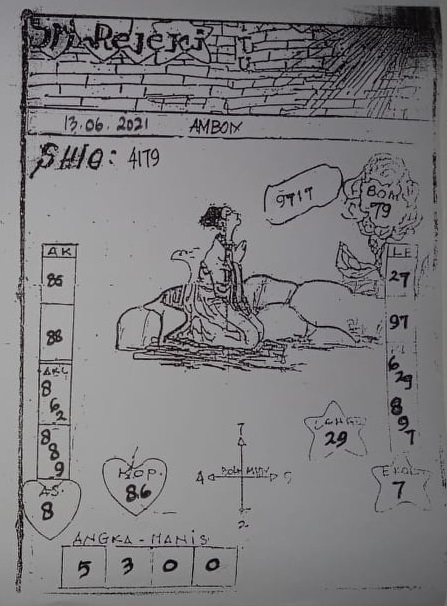 Sri Rejeki
ITU
13.06.2021 AMBON
SHIO: 4179
9717
BOM
79
AK
86
88
AKL
8
6
2
8
8
9
AS.
8
KOP.
86
LE
27
97
6
29
8
9
7
29
EKOR
7
7
4
2
ANGKA-MANIS
5 3 0 0